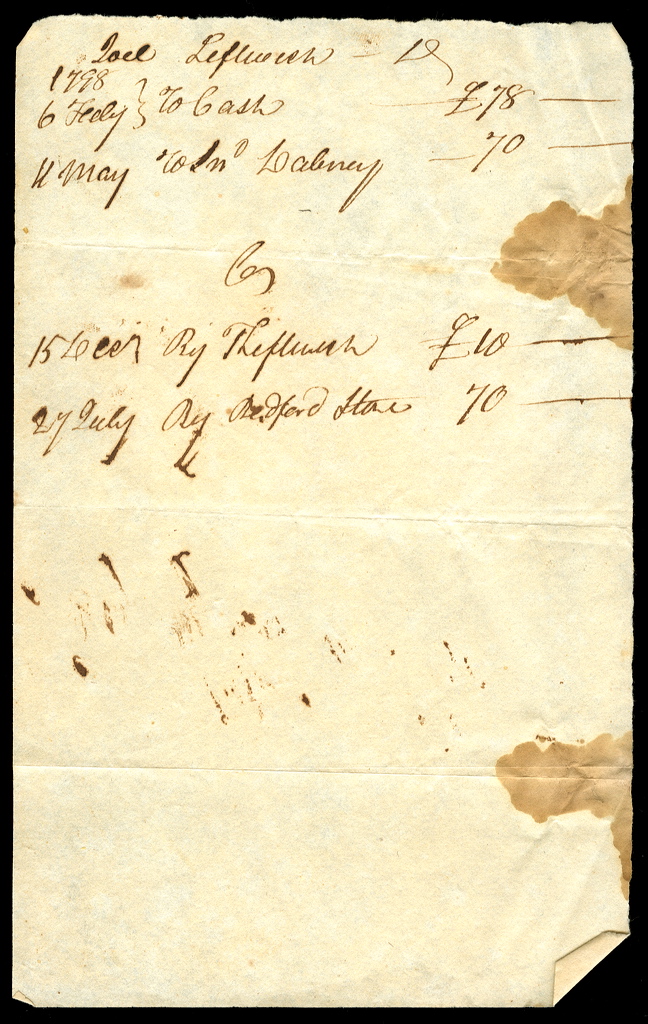 Joel Leftwich - Dr
1798
6 Feby } To Cash £78 —
11 May To Jno Dabney — 70 —
Cr
15 Decr By T Leftwich £10 —
27 July By Bedford Store 70 —